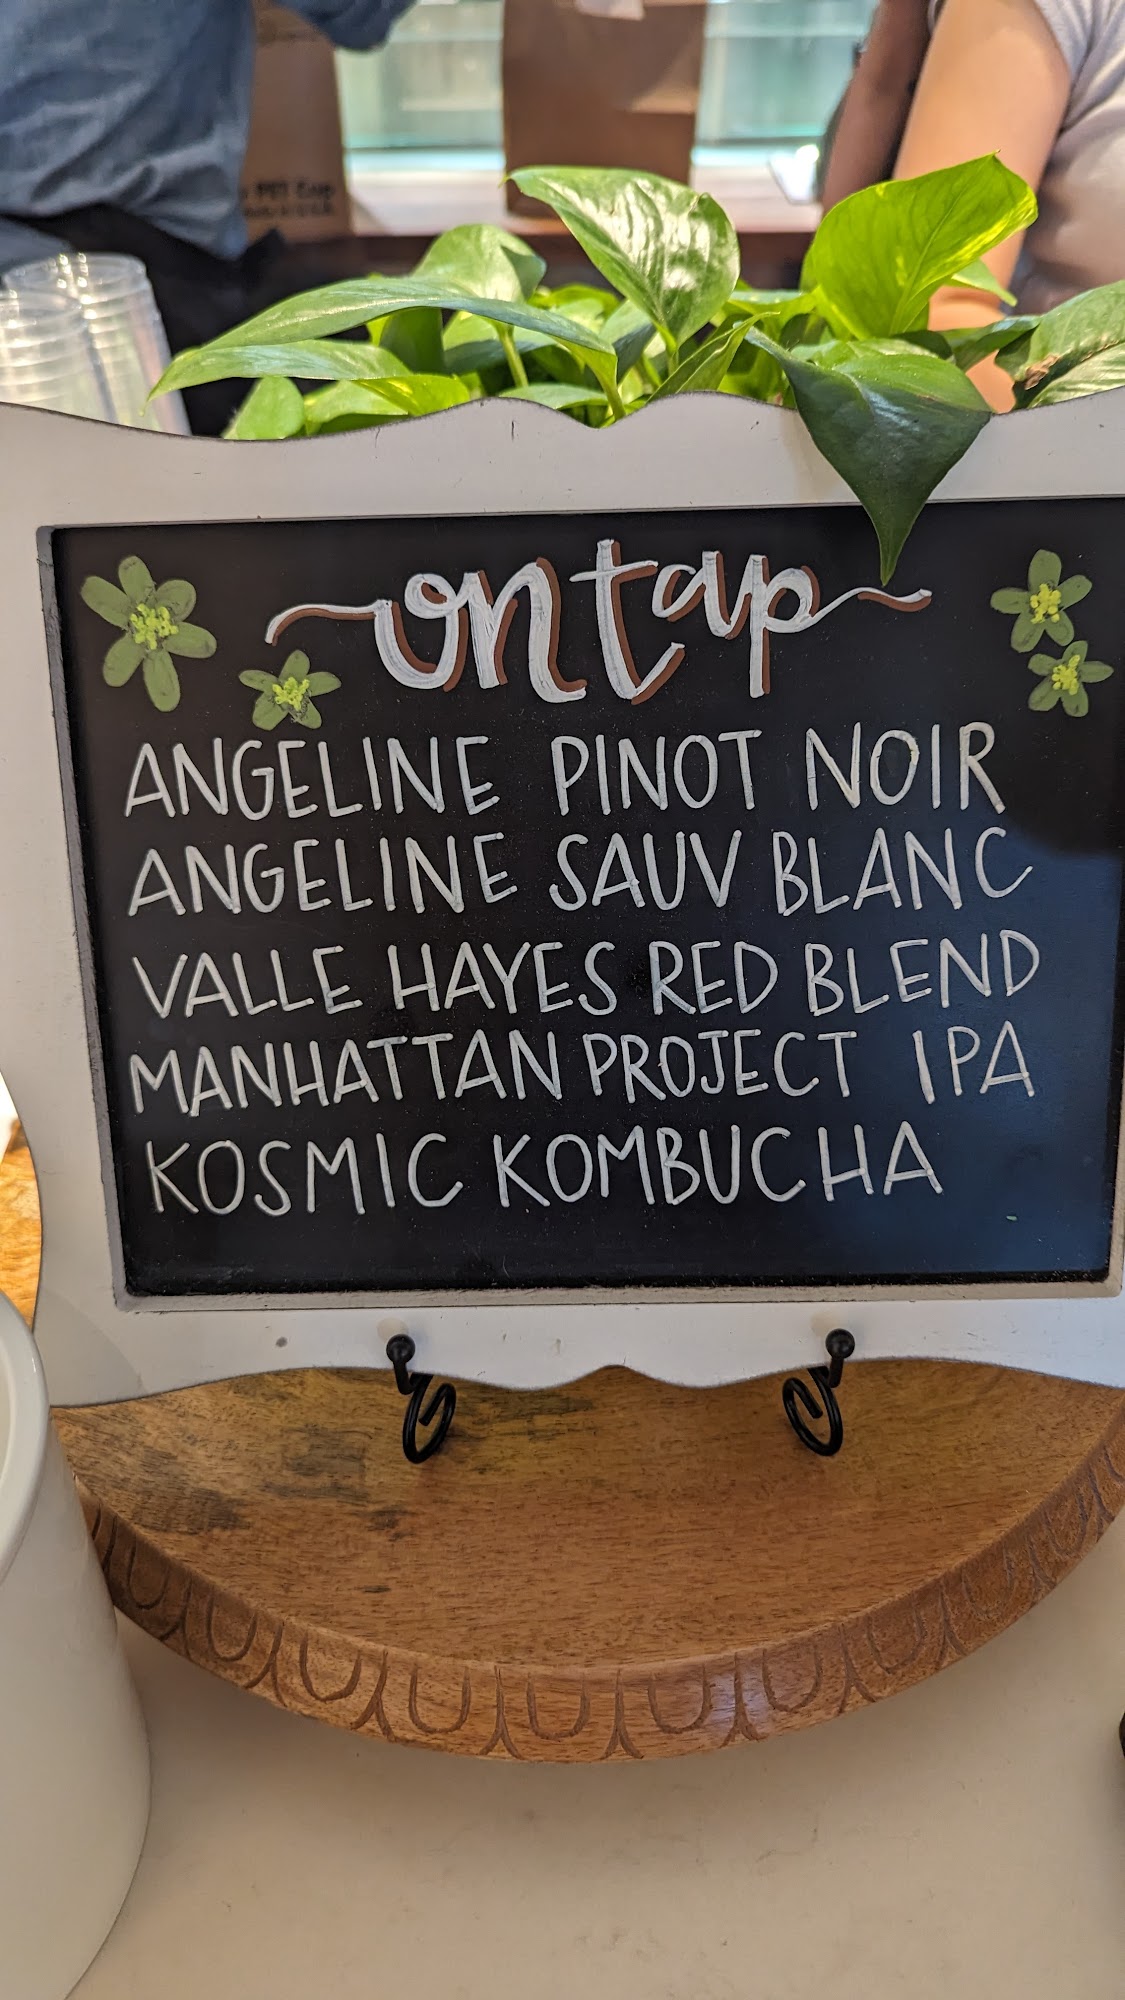 on tap
ANGELINE PINOT NOIR
ANGELINE SAUV BLANC
VALLE HAYES RED BLEND
MANHATTAN PROJECT IPA
KOSMIC KOMBUCHA